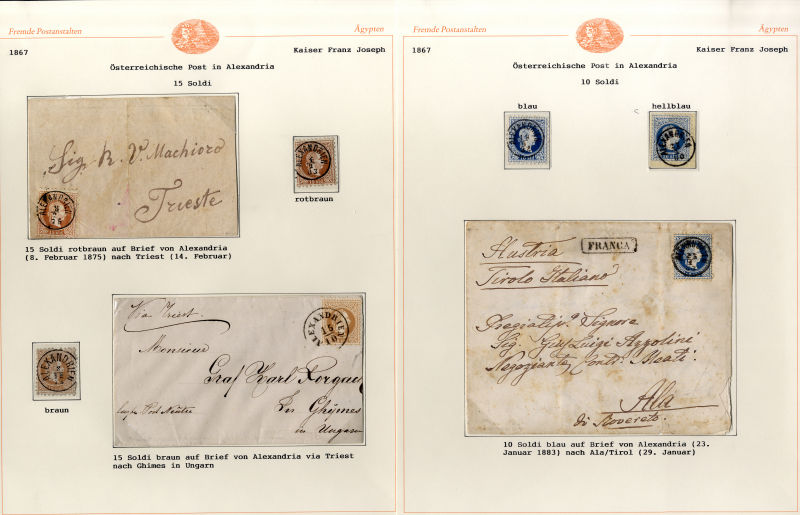 Fremde Postanstalten
Ägypten
1867
Kaiser Franz Joseph
Österreichische Post in Alexandria
15 Soldi
Sig. R. V. Machioro
Trieste
ALEXANDRIEN
ALEXANDRIEN
rotbraun
15 Soldi rotbraun auf Brief von Alexandria
(8. Februar 1875) nach Triest (14. Februar)
Via Triest
ALEXANDRIEN
Monsieur
Graf Karl Forgac
Ghymes
in Ungarn
ALEXANDRIEN
braun
15 Soldi braun auf Brief von Alexandria via Triest
nach Ghimes in Ungarn
Fremde Postanstalten
Ägypten
1867
Kaiser Franz Joseph
Österreichische Post in Alexandria
10 Soldi
blau
hellblau
Austria
FRANCA
Tirolo Italiano
Signore
Sig. Luigi Azzolini
Negoziante
Ala
di Rovereto.
10 Soldi blau auf Brief von Alexandria (23.
Januar 1883) nach Ala/Tirol (29. Januar)